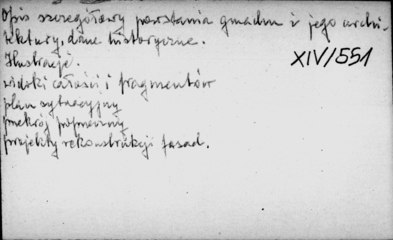 Opis szczegółowy powstania gmachu i jego archi-
tektury, dane historyczne.
Ilustracje.
XIV/551
widoki całości i fragmentów
plan sytuacyjny
przekrój poprzeczny
projekty rekonstrukcji fasad.